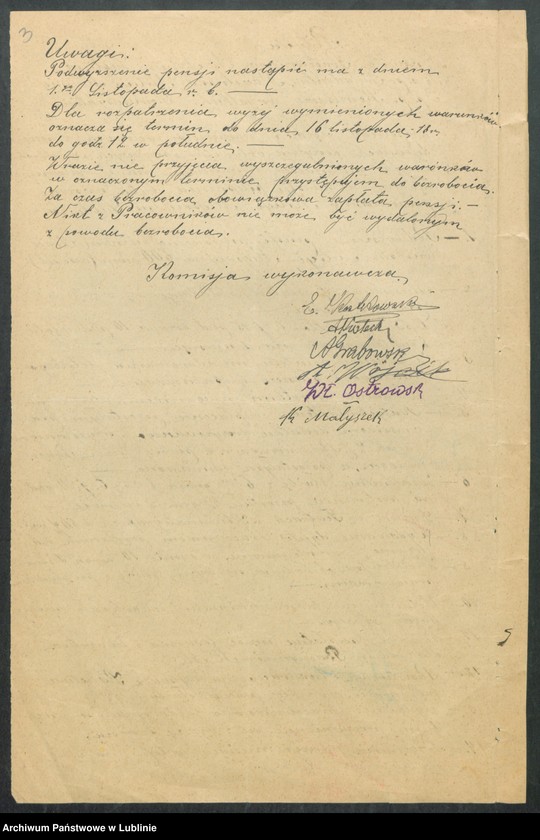 3
Uwagi:
Podwyższenie pensji nastąpić ma z dniem
1.go Listopada r. b. —
Dla rozpatrzenia wyżej wymienionych warunków
oznacza się termin do dnia 16 listopada, 18 r.
do godz 12 w południe. —
W razie nie przyjęcia wyszczególnionych warunków
w oznaczonym terminie przystępujem do bezrobocia.
Za czas bezrobocia obowiązkowa zapłata pensji. —
Nikt z Pracowników nie może być wydalonym
z powodu bezrobocia. —
Komisja wykonawcza
E.
A Grabowski
A. Wójcik
Wł. Ostrowsk
K Małyszek
Archiwum Państwowe w Lublinie